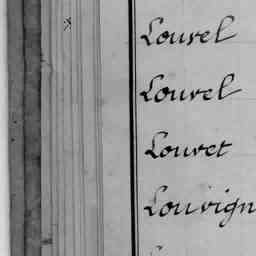 Louvel
Louvel
Louvet
Louvign